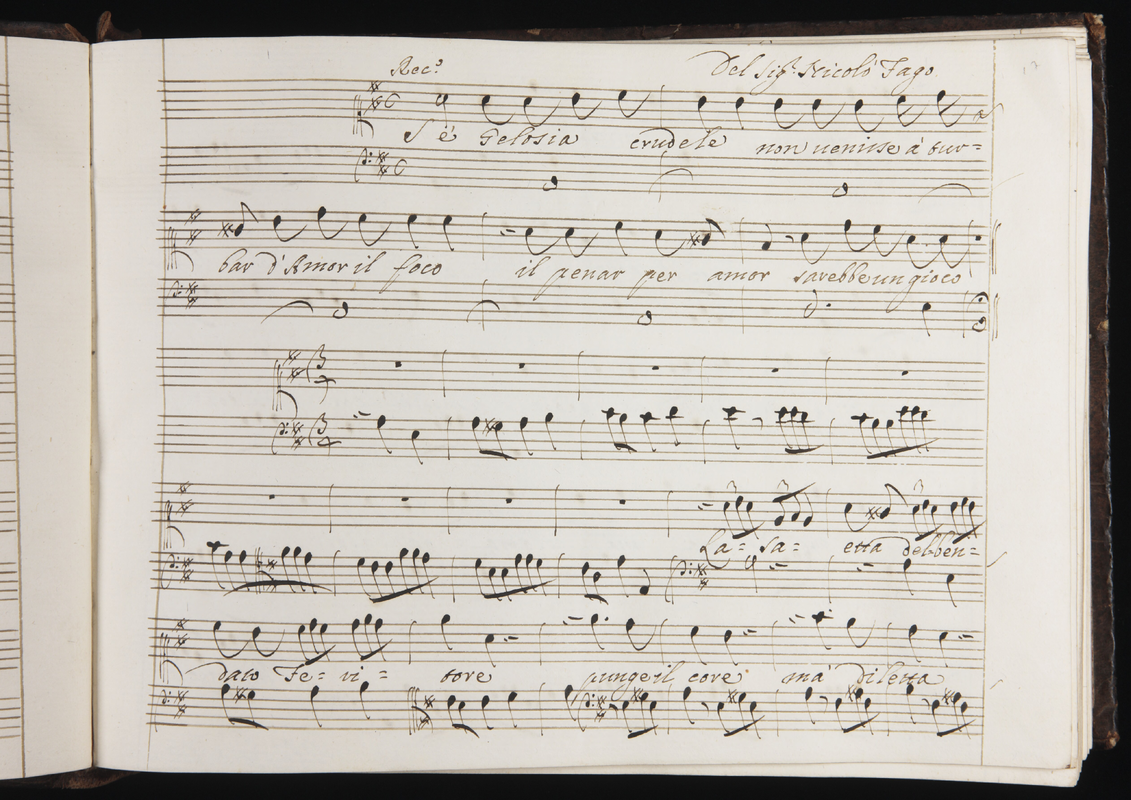 Rec.º Del Sigʳ. Nicolò Fago
Se Gelosia crudele non uenisse à tur=
bar d'Amor il foco il penar per amor sarebbe un gioco
3 4
3 4
3 3 3
La= sa= etta del ben=
dato Fe= ri= tore punge il core ma' diletta